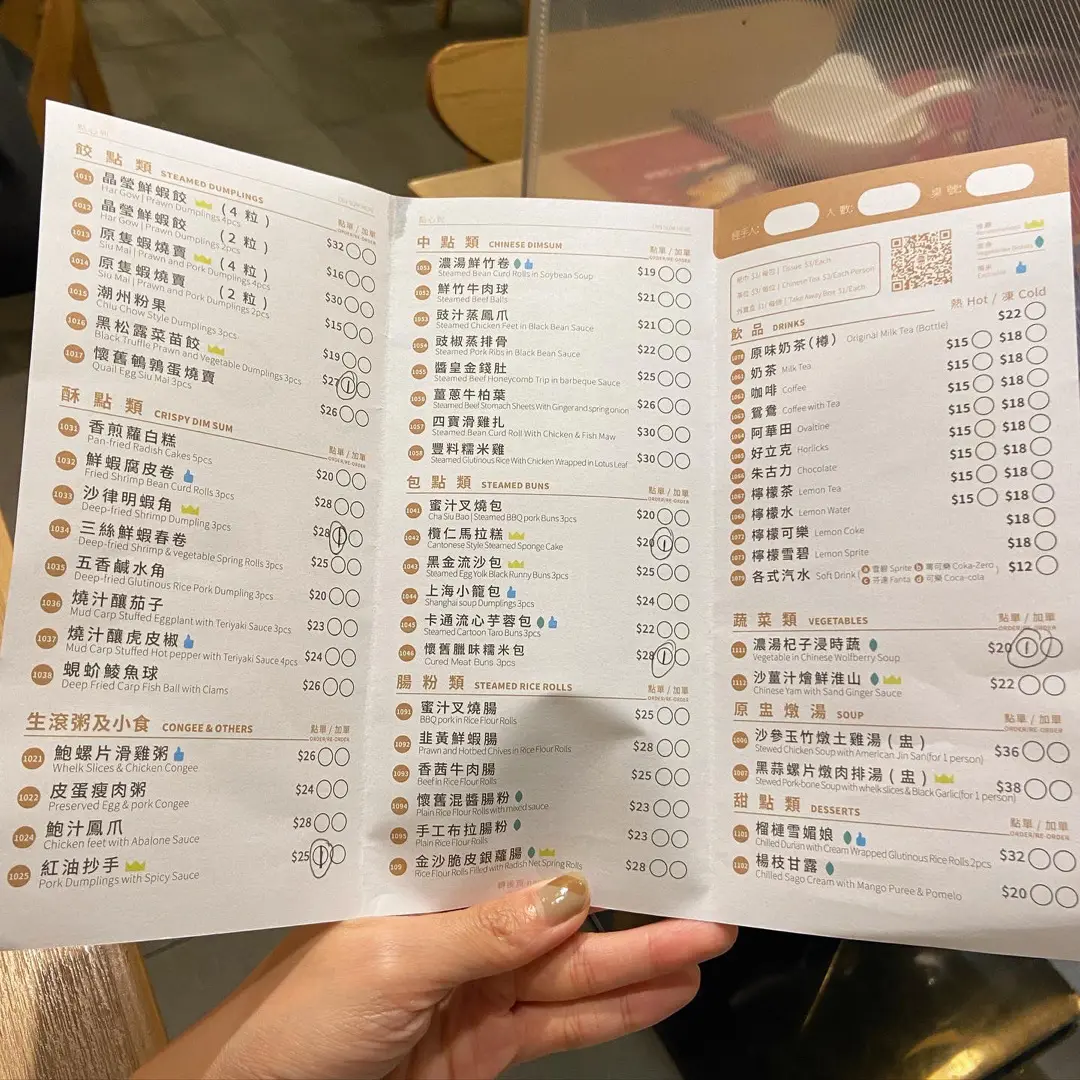 點心到
餃 點 類 STEAMED DUMPLINGS
點單 / 加單
ORDER/RE-ORDER
1011 晶瑩鮮蝦餃 (4粒) $32
Har Gow | Prawn Dumplings 4pcs
1012 晶瑩鮮蝦餃 (2粒) $16
Har Gow | Prawn Dumplings 2pcs
1013 原隻蝦燒賣 (4粒) $30
Siu Mai | Prawn and Pork Dumplings 4pcs
1014 原隻蝦燒賣 (2粒) $15
Siu Mai | Prawn and Pork Dumplings 2pcs
1015 潮州粉果 $19
Chiu Chow Style Dumplings 3pcs
1016 黑松露菜苗餃 $27 1
Black Truffle Prawn and Vegetable Dumplings 3pcs
1017 懷舊鵪鶉蛋燒賣 $26
Quail Egg Siu Mai 3pcs
酥 點 類 CRISPY DIM SUM
點單 / 加單
ORDER/RE-ORDER
1031 香煎蘿白糕 $20
Pan-fried Radish Cakes 5pcs
1032 鮮蝦腐皮卷 $28
Fried Shrimp Bean Curd Rolls 3pcs
1033 沙律明蝦角 $28 1
Deep-fried Shrimp Dumpling 3pcs
1034 三絲鮮蝦春卷 $25
Deep-fried Shrimp & vegetable Spring Rolls 3pcs
1035 五香鹹水角 $20
Deep-fried Glutinous Rice Pork Dumpling 3pcs
1036 燒汁釀茄子 $23
Mud Carp Stuffed Eggplant with Teriyaki Sauce 3pcs
1037 燒汁釀虎皮椒 $24
Mud Carp Stuffed Hot pepper with Teriyaki Sauce 4pcs
1038 蜆蚧鯪魚球 $26
Deep Fried Carp Fish Ball with Clams
生滾粥及小食 CONGEE & OTHERS
點單 / 加單
ORDER/RE-ORDER
1021 鮑螺片滑雞粥 $26
Whelk Slices & Chicken Congee
1022 皮蛋瘦肉粥 $24
Preserved Egg & pork Congee
1024 鮑汁鳳爪 $28
Chicken feet with Abalone Sauce
1025 紅油抄手 $25 1
Pork Dumplings with Spicy Sauce
點心到
中 點 類 CHINESE DIMSUM
1051 濃湯鮮竹卷 $19
Steamed Bean Curd Rolls in Soybean Soup
1052 鮮竹牛肉球 $21
Steamed Beef Balls
1053 豉汁蒸鳳爪 $21
Steamed Chicken Feet in Black Bean Sauce
1054 豉椒蒸排骨 $22
Steamed Pork Ribs in Black Bean Sauce
1055 醬皇金錢肚 $25
Steamed Beef Honeycomb Trip in barbeque Sauce
1056 薑蔥牛柏葉 $26
Steamed Beef Stomach Sheets With Ginger and spring onion
1057 四寶滑雞扎 $30
Steamed Bean Curd Roll With Chicken & Fish Maw
1058 豐料糯米雞 $30
Steamed Glutinous Rice With Chicken Wrapped in Lotus Leaf
包 點 類 STEAMED BUNS
點單 / 加單
ORDER/RE-ORDER
1041 蜜汁叉燒包 $20
Cha Siu Bao | Steamed BBQ pork Buns 3pcs
1042 欖仁馬拉糕 $20 1
Cantonese Style Steamed Sponge Cake
1043 黑金流沙包 $25
Steamed Egg Yolk Black Runny Buns 3pcs
1044 上海小籠包 $24
Shanghai soup Dumplings 3pcs
1045 卡通流心芋蓉包 $22
Steamed Cartoon Taro Buns 3pcs
1046 懷舊臘味糯米包 $28 1
Cured Meat Buns 3pcs
腸 粉 類 STEAMED RICE ROLLS
點單 / 加單
ORDER/RE-ORDER
1091 蜜汁叉燒腸 $25
BBQ pork in Rice Flour Rolls
1092 韭黃鮮蝦腸 $28
Prawn and Hotbed Chives in Rice Flour Rolls
1093 香茜牛肉腸 $25
Beef in Rice Flour Rolls
1094 懷舊混醬腸粉 $23
Plain Rice Flour Rolls with mixed sauce
1095 手工布拉腸粉 $23
Plain Rice Flour Rolls
109 金沙脆皮銀蘿腸 $28
Rice Flour Rolls Filled with Radish Net Spring Rolls
經手人: 人數: 來號:
紙巾 $1/每包 | Tissue $1/Each
茶位 $3/每位 | Chinese Tea $3/Each Person
外賣盒 $1/每個 | Take Away Box $1/Each
飲 品 DRINKS 熱 Hot / 凍 Cold
原味奶茶(樽) Original Milk Tea (Bottle) $22
奶茶 Milk Tea $15 $18
咖啡 Coffee $15 $18
鴛鴦 Coffee with Tea $15 $18
阿華田 Ovaltine $15 $18
好立克 Horlicks $15 $18
朱古力 Chocolate $15 $18
檸檬茶 Lemon Tea $15 $18
檸檬水 Lemon Water $15 $18
檸檬可樂 Lemon Coke $18
檸檬雪碧 Lemon Sprite $18
各式汽水 Soft Drink a 雪碧 Sprite b 零可樂 Coka-Zero $12
c 芬達 Fanta d 可樂 Coca-cola
蔬 菜 類 VEGETABLES
點單 / 加單
ORDER/RE-ORDER
1111 濃湯杞子浸時蔬 $20 1
Vegetable in Chinese Wolfberry Soup
1112 沙薑汁燴鮮淮山 $22
Chinese Yam with Sand Ginger Sauce
原 盅 燉 湯 SOUP
點單 / 加單
ORDER/RE-ORDER
1006 沙參玉竹燉土雞湯 (盅) $36
Stewed Chicken Soup with American Jin San(for 1 person)
1007 黑蒜螺片燉肉排湯 (盅) $38
Stewed Pork-bone Soup with whelk slices & Black Garlic(for 1 person)
甜 點 類 DESSERTS
點單 / 加單
ORDER/RE-ORDER
1101 榴槤雪媚娘 $32
Chilled Durian with Cream Wrapped Glutinous Rice Rolls 2pcs
1102 楊枝甘露 $20
Chilled Sago Cream with Mango Puree & Pomelo